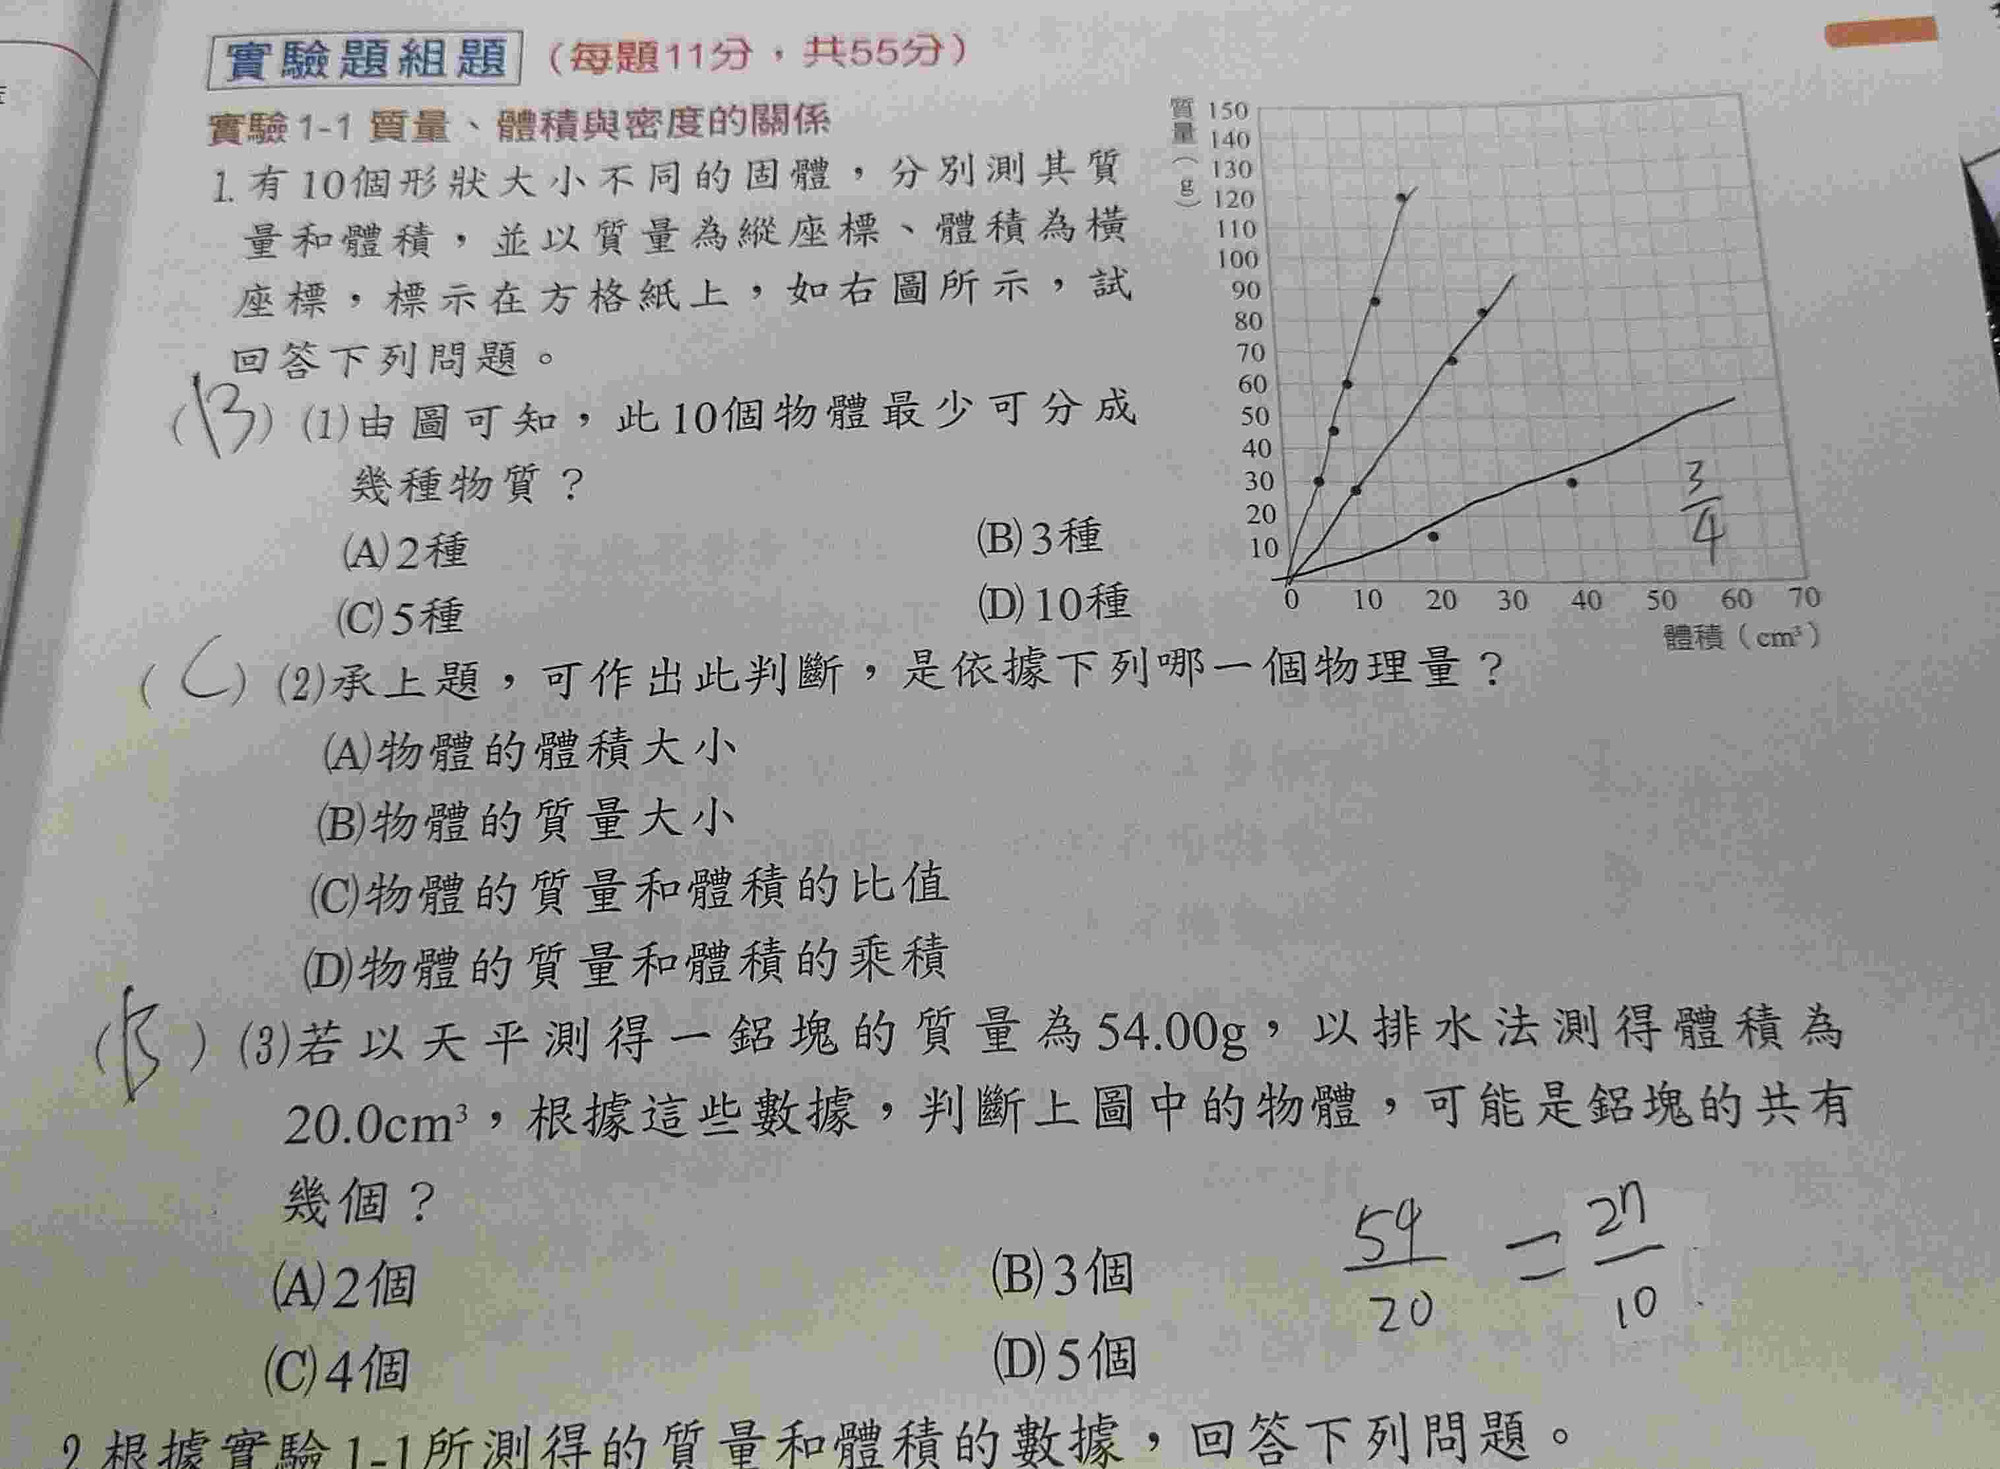 實驗題組題（每題11分，共55分）
實驗1-1 質量、體積與密度的關係
1. 有10個形狀大小不同的固體，分別測其質
量和體積，並以質量為縱座標、體積為橫
座標，標示在方格紙上，如右圖所示，試
回答下列問題。
(B) (1)由圖可知，此10個物體最少可分成
幾種物質？
(A)2種 (B)3種
(C)5種 (D)10種
質量（g）
150
140
130
120
110
100
90
80
70
60
50
40
30
20
10
0 10 20 30 40 50 60 70
體積（cm³）
3/4
(C) (2)承上題，可作出此判斷，是依據下列哪一個物理量？
(A)物體的體積大小
(B)物體的質量大小
(C)物體的質量和體積的比值
(D)物體的質量和體積的乘積
(B) (3)若以天平測得一鋁塊的質量為54.00g，以排水法測得體積為
20.0cm³，根據這些數據，判斷上圖中的物體，可能是鋁塊的共有
幾個？
(A)2個 (B)3個
(C)4個 (D)5個
54/20 = 27/10
2.根據實驗1-1所測得的質量和體積的數據，回答下列問題。